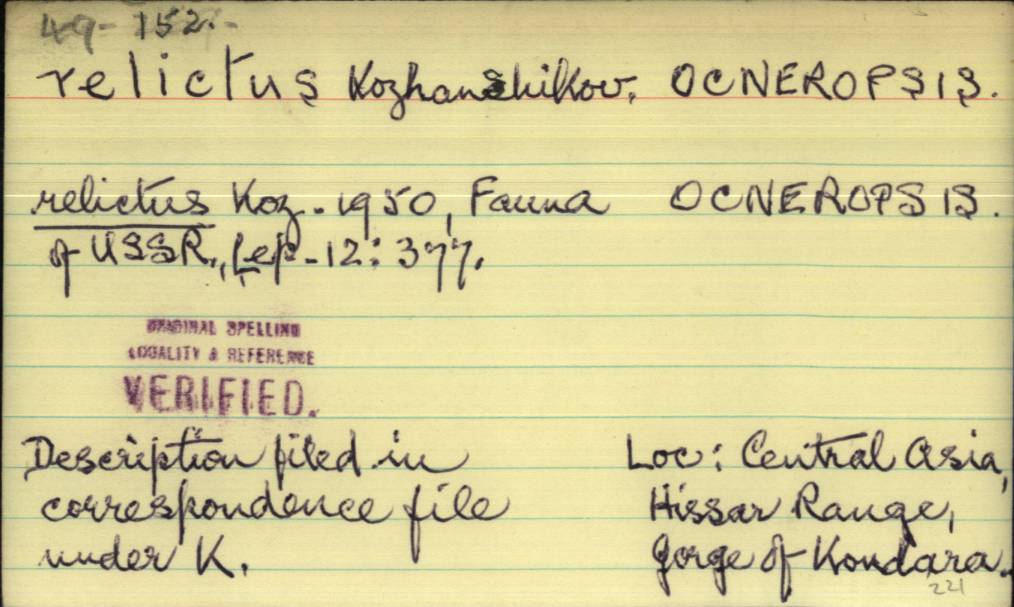 49-152.
relictus Kozhanshikov. OCNEROPSIS.
relictus Koz. 1950, Fauna OCNEROPSIS.
of USSR., Lep. 12: 377.
ORIGINAL SPELLING
LOCALITY & REFERENCE
VERIFIED.
Description filed in Loc: Central Asia,
correspondence file Hissar Range,
under K. Gorge of Kondara.
221